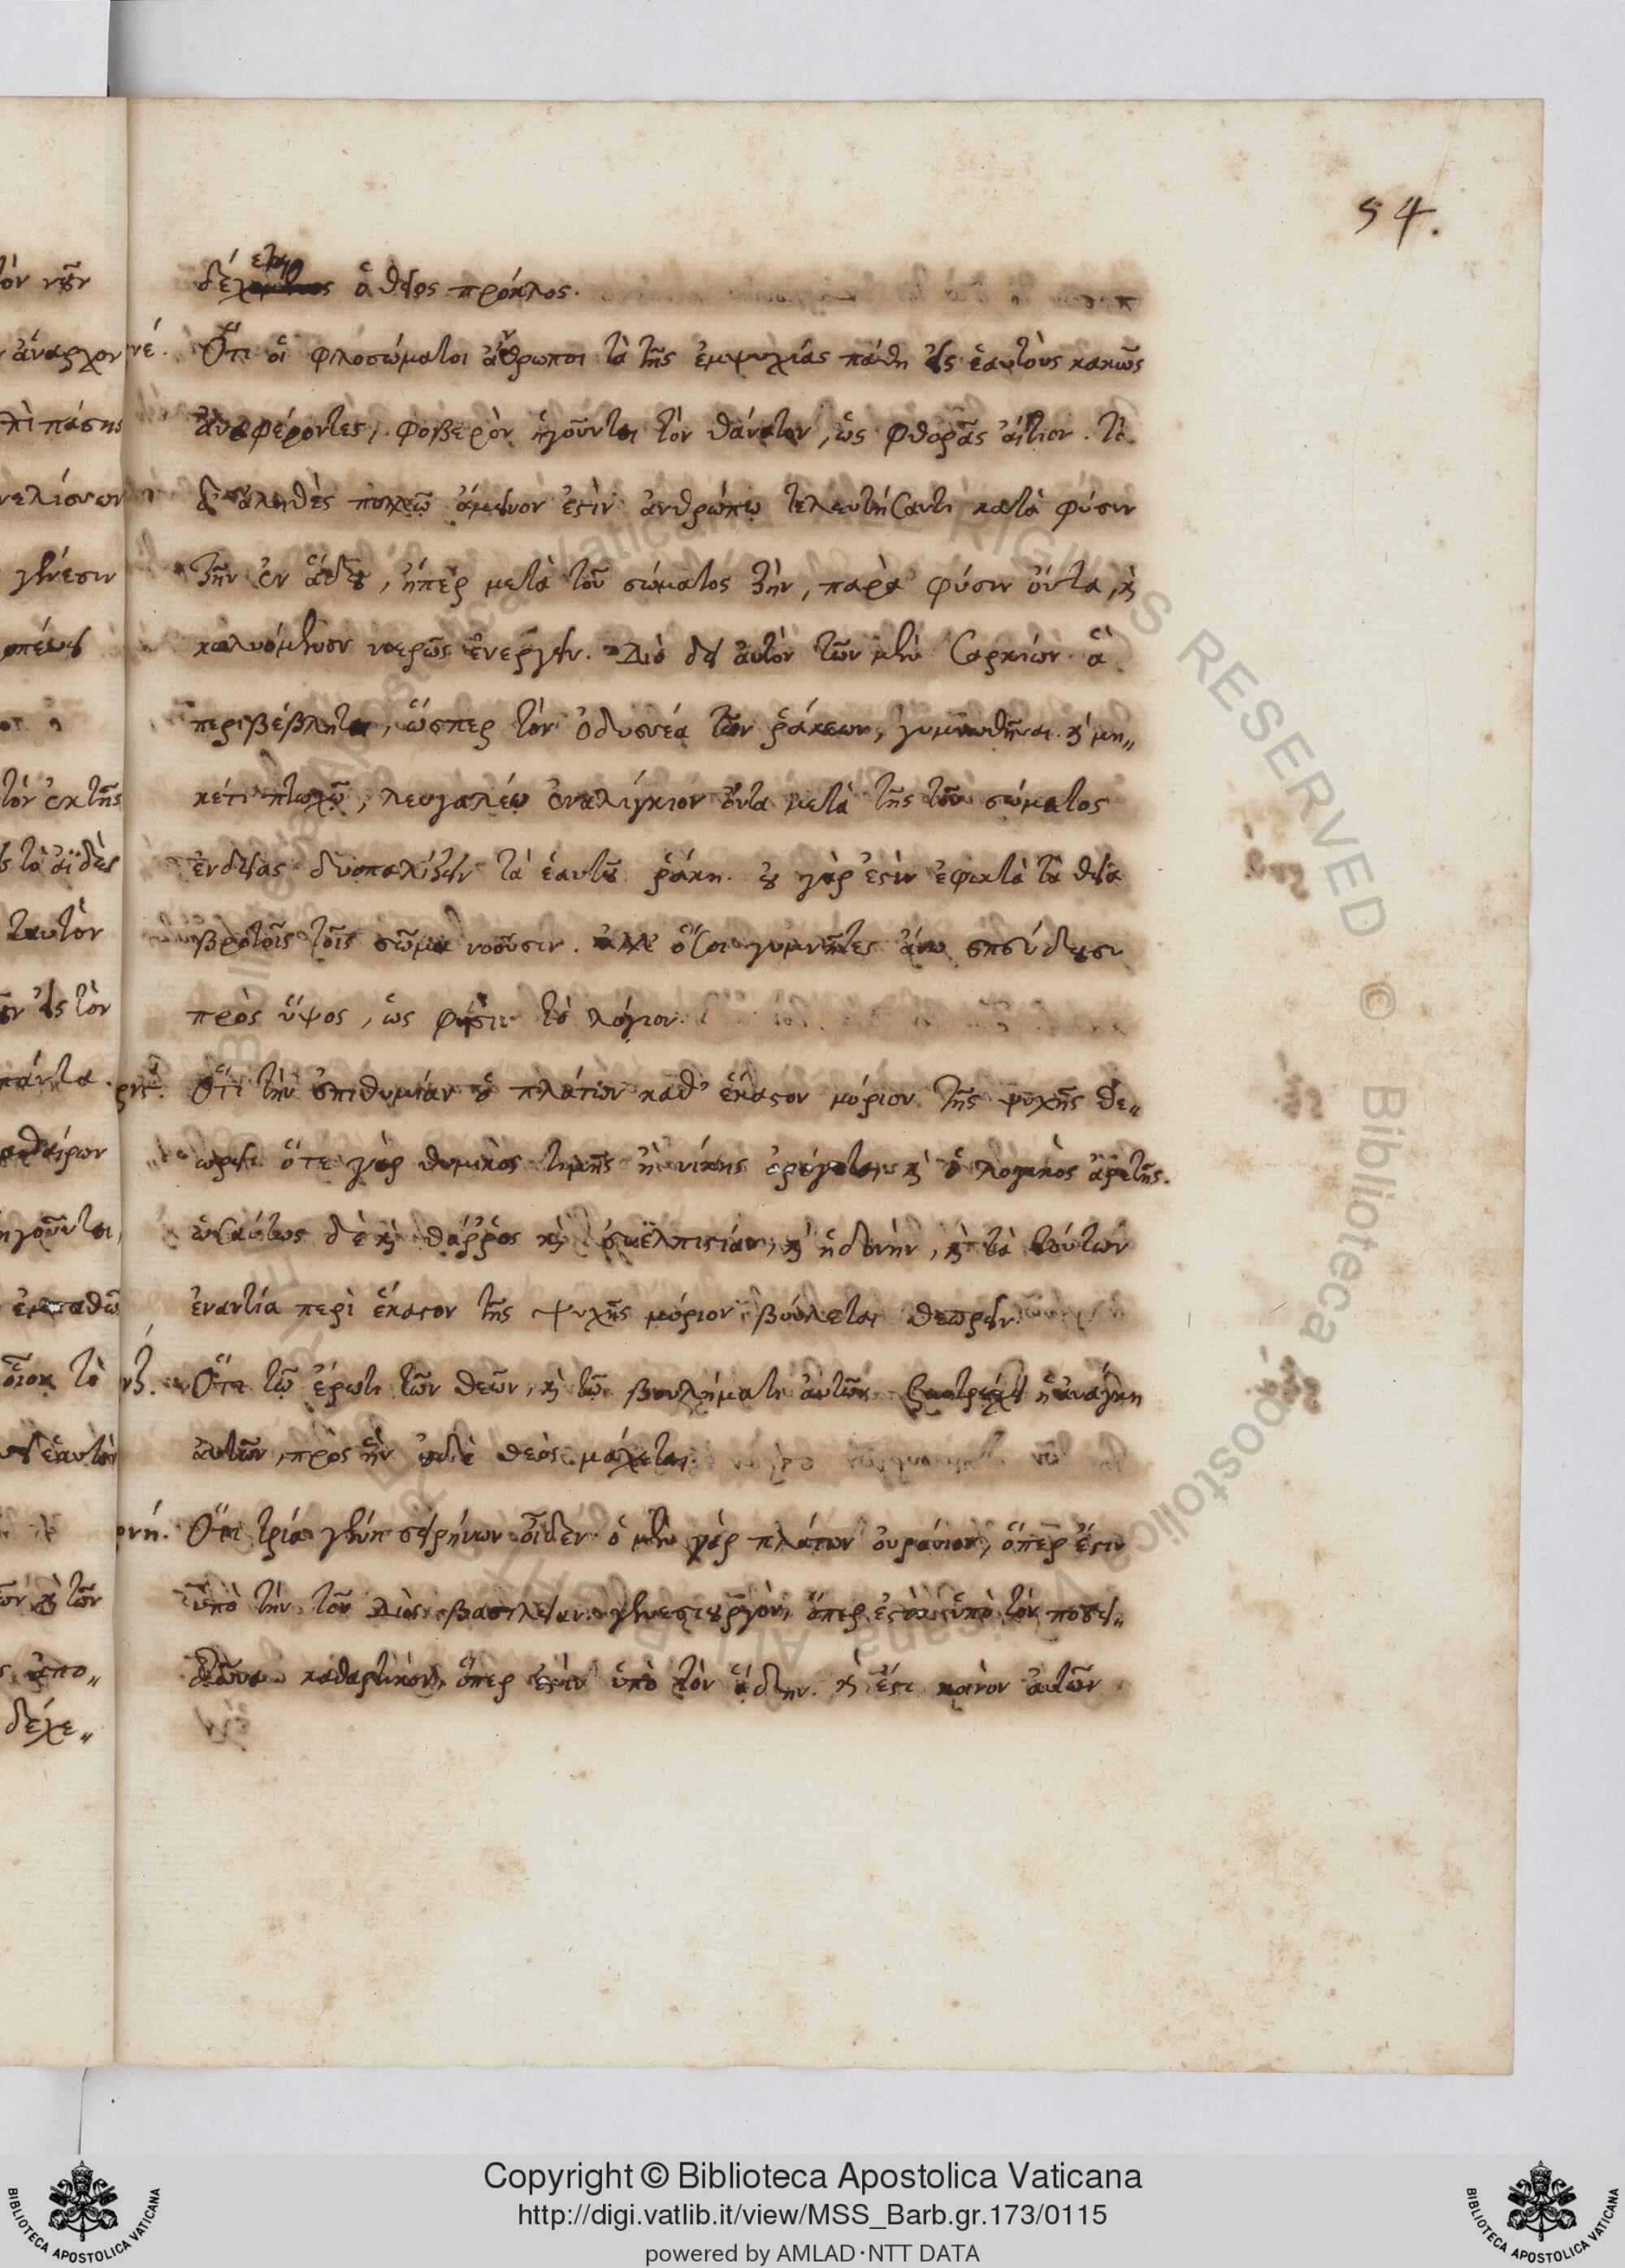 54.
δέχεται ὁ θεῖος πρόκλος.
Ὅτι οἱ φιλοσώματοι ἄνθρωποι τὰ τῆς ἐμψυχίας πάθη εἰς ἑαυτοὺς κακῶς
ἀναφέροντες, φοβερὸν ἡγοῦνται τὸν θάνατον, ὡς φθορᾶς αἴτιον. τὸ
δ' ἀληθὲς πολλῷ ἄμεινον ἐστὶν ἀνθρώπῳ τελευτήσαντι κατὰ φύσιν
ζῆν ἐν ᾅδου, ἤπερ μετὰ τοῦ σώματος ζῆν, παρὰ φύσιν ὄντα, καὶ
κωλυόμενον νοερῶς ἐνεργεῖν. Διὸ δεῖ αὐτὸν τῶν μὲν σαρκίων ἃ
περιβέβληται, ὥσπερ τὸν Ὀδυσσέα τῶν ῥάκεων, γυμνωθῆναι καὶ μη„
κέτι πτωχῷ, λευγαλέῳ ἐναλίγκιον ὄντα μετὰ τῆς τοῦ σώματος
ἐνδείας δυοπαλίζειν τὰ ἑαυτοῦ ῥάκη. οὐ γὰρ ἐστὶν ἐφικτὰ τὰ θεῖα
βροτοῖς τοῖς σῶμα νοοῦσιν. ἀλλ' ὅσοι γυμνῆτες ἄνω σπεύδουσι
πρὸς ὕψος, ὡς φησὶ τὸ λόγιον.
ρνϛ. Ὅτι τὴν ἐπιθυμίαν ὁ πλάτων καθ' ἕκαστον μόριον τῆς ψυχῆς θε„
ωρεῖ ὅτε γὰρ θυμικὸς τιμῆς ἢ νίκης ὀρέγεται, καὶ ὁ λογικὸς ἀρετῆς.
ὡσαύτως δὲ καὶ θάρρος καὶ εὐελπιστίαν, καὶ ἡδονὴν, καὶ τὰ τούτων
ἐναντία περὶ ἕκαστον τῆς ψυχῆς μόριον βούλεται θεωρεῖν.
νζ. Ὅτι τῷ ἔρωτι τῶν θεῶν, καὶ τῷ βουλήματι αὐτῶν συντρέχει ἡ ἀνάγκη
αὐτῶν, πρὸς ἣν οὐδὲ θεὸς μάχεται.
ρνή. Ὅτι τρία γένη σειρήνων οἶδεν ὁ μὲν γὰρ πλάτων οὐράνιον, ὅπερ ἐστιν
ὑπὸ τὴν τοῦ Διὸς βασιλείαν. γενεσιουργὸν, ὅπερ ἐστὶν ὑπὸ τὸν ποσει„
δῶνα. καθαρτικὸν, ὅπερ ἐστὶν ὑπὸ τὸν ᾅδην. καὶ ἔστι κοινὸν αὐτῶν
Copyright © Biblioteca Apostolica Vaticana
http://digi.vatlib.it/view/MSS_Barb.gr.173/0115
powered by AMLAD·NTT DATA